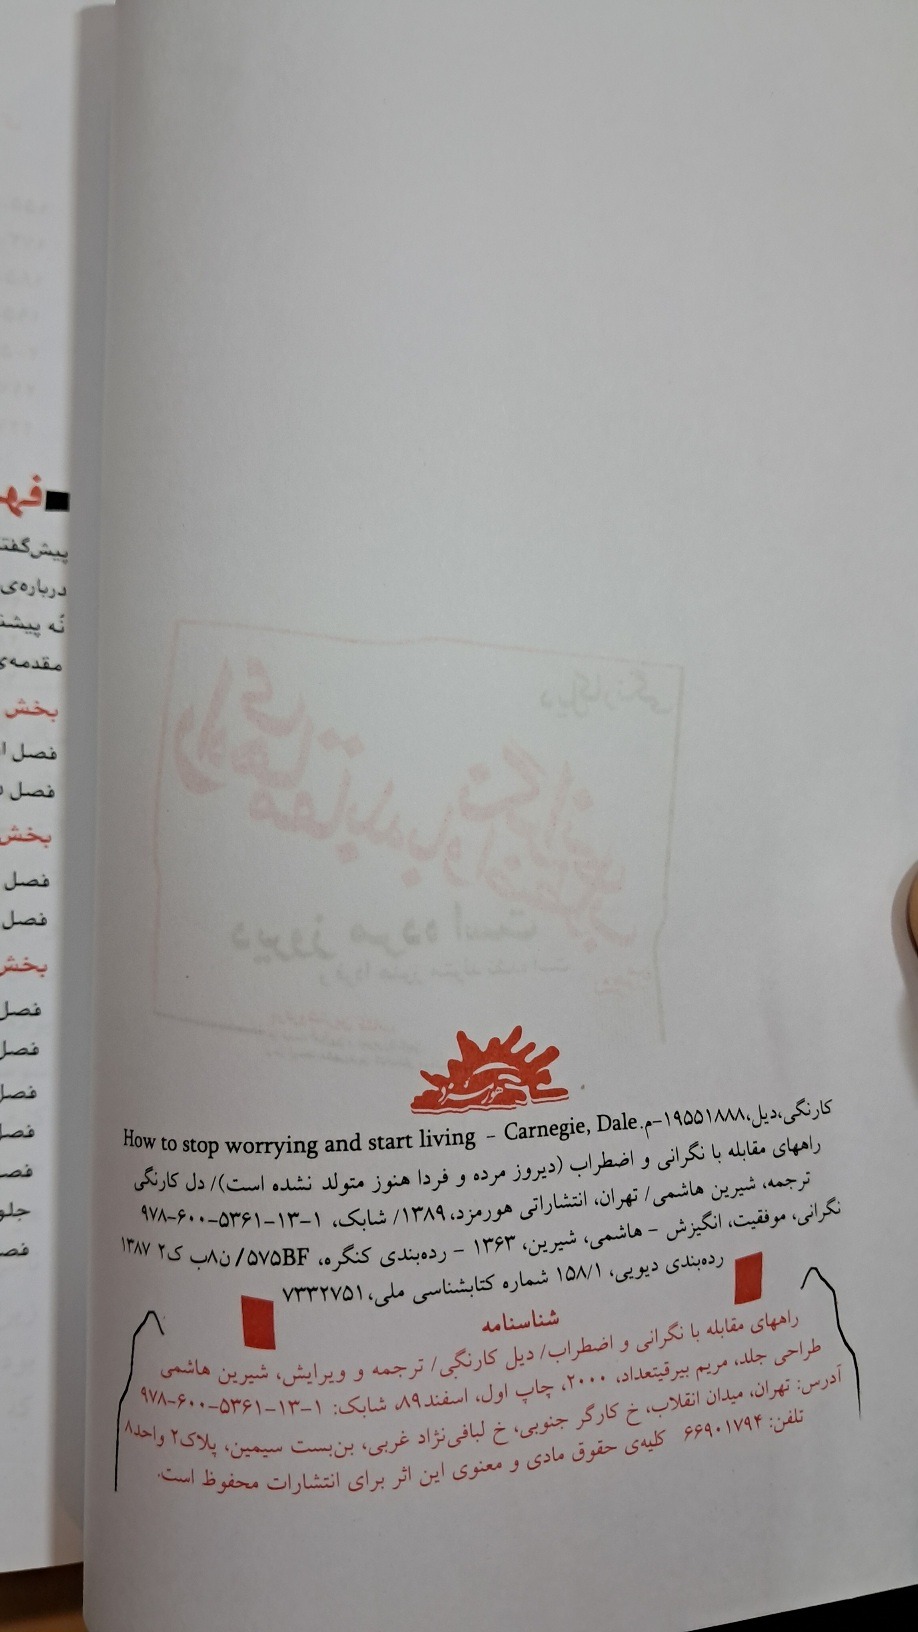 هورمزد
کارنگی،دیل،۱۹۵۵۱۸۸۸-م.How to stop worrying and start living - Carnegie, Dale
راههای مقابله با نگرانی و اضطراب (دیروز مرده و فردا هنوز متولد نشده است)/ دل کارنگی
ترجمه، شیرین هاشمی/ تهران، انتشاراتی هورمزد،۱۳۸۹/ شابک، ۱-۱۳-۵۳۶۱-۶۰۰-۹۷۸
نگرانی، موفقیت، انگیزش - هاشمی، شیرین، ۱۳۶۳ - رده‌بندی کنگره، ۵۷۵BF/ ن۸ب ک۲ ۱۳۸۷
رده‌بندی دیویی، ۱۵۸/۱ شماره کتابشناسی ملی،۷۳۳۲۷۵۱
شناسنامه
راههای مقابله با نگرانی و اضطراب/ دیل کارنگی/ ترجمه و ویرایش، شیرین هاشمی
طراحی جلد، مریم بیرقیتعداد، ۲۰۰۰، چاپ اول، اسفند۸۹، شابک: ۱-۱۳-۵۳۶۱-۶۰۰-۹۷۸
آدرس: تهران، میدان انقلاب، خ کارگر جنوبی، خ لبافی‌نژاد غربی، بن‌بست سیمین، پلاک۲ واحد۸
تلفن: ۶۶۹۰۱۷۹۴ کلیه‌ی حقوق مادی و معنوی این اثر برای انتشارات محفوظ است.
پیش‌گفتا
درباره‌ی
نُه پیشنـ
مقدمه‌ی
بخش
فصل
فصل
بخش
فصل
فصل
بخش
فصل
فصل
فصل
فصل
فصـ
جلو
فصـ